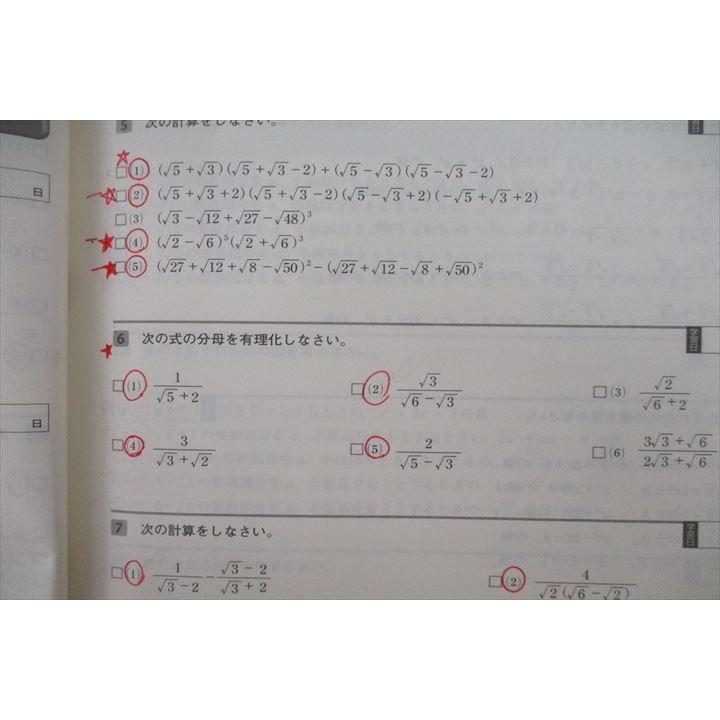 5 次の計算をしなさい。
日
□(1) (√5+√3)(√5+√3−2)+(√5−√3)(√5−√3−2)
□(2) (√5+√3+2)(√5+√3−2)(√5−√3+2)(−√5+√3+2)
□(3) (√3−√12+√27−√48)³
□(4) (√2−√6)⁵(√2+√6)³
□(5) (√27+√12+√8−√50)²−(√27+√12−√8+√50)²
6 次の式の分母を有理化しなさい。 学習日
□(1) 1/(√5+2) □(2) √3/(√6−√3) □(3) √2/(√6+2)
日
□(4) 3/(√3+√2) □(5) 2/(√5−√3) □(6) (3√3+√6)/(2√3+√6)
7 次の計算をしなさい。 学習日
□(1) 1/(√3−2) − (√3−2)/(√3+2) □(2) 4/(√2(√6−√2))